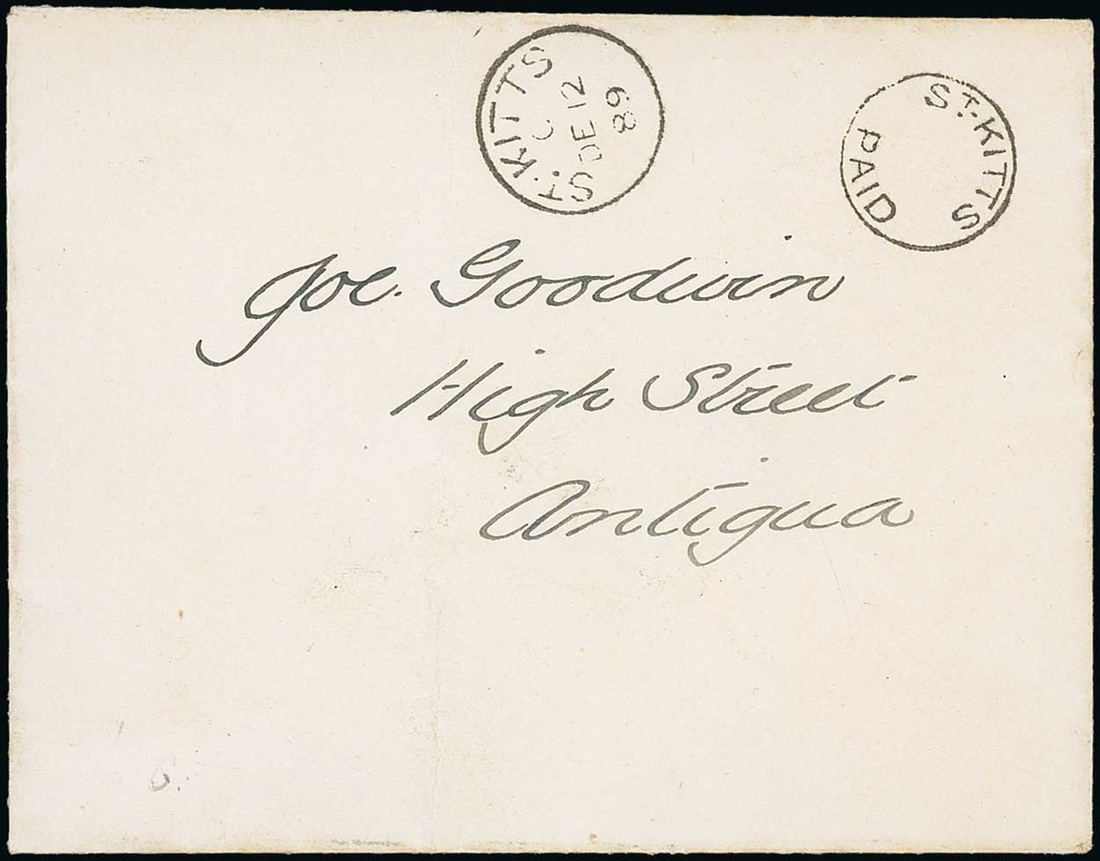 ST. KITTS
C
DE 12
89
ST. KITTS
PAID
Joe. Goodwin
High Street
Antigua